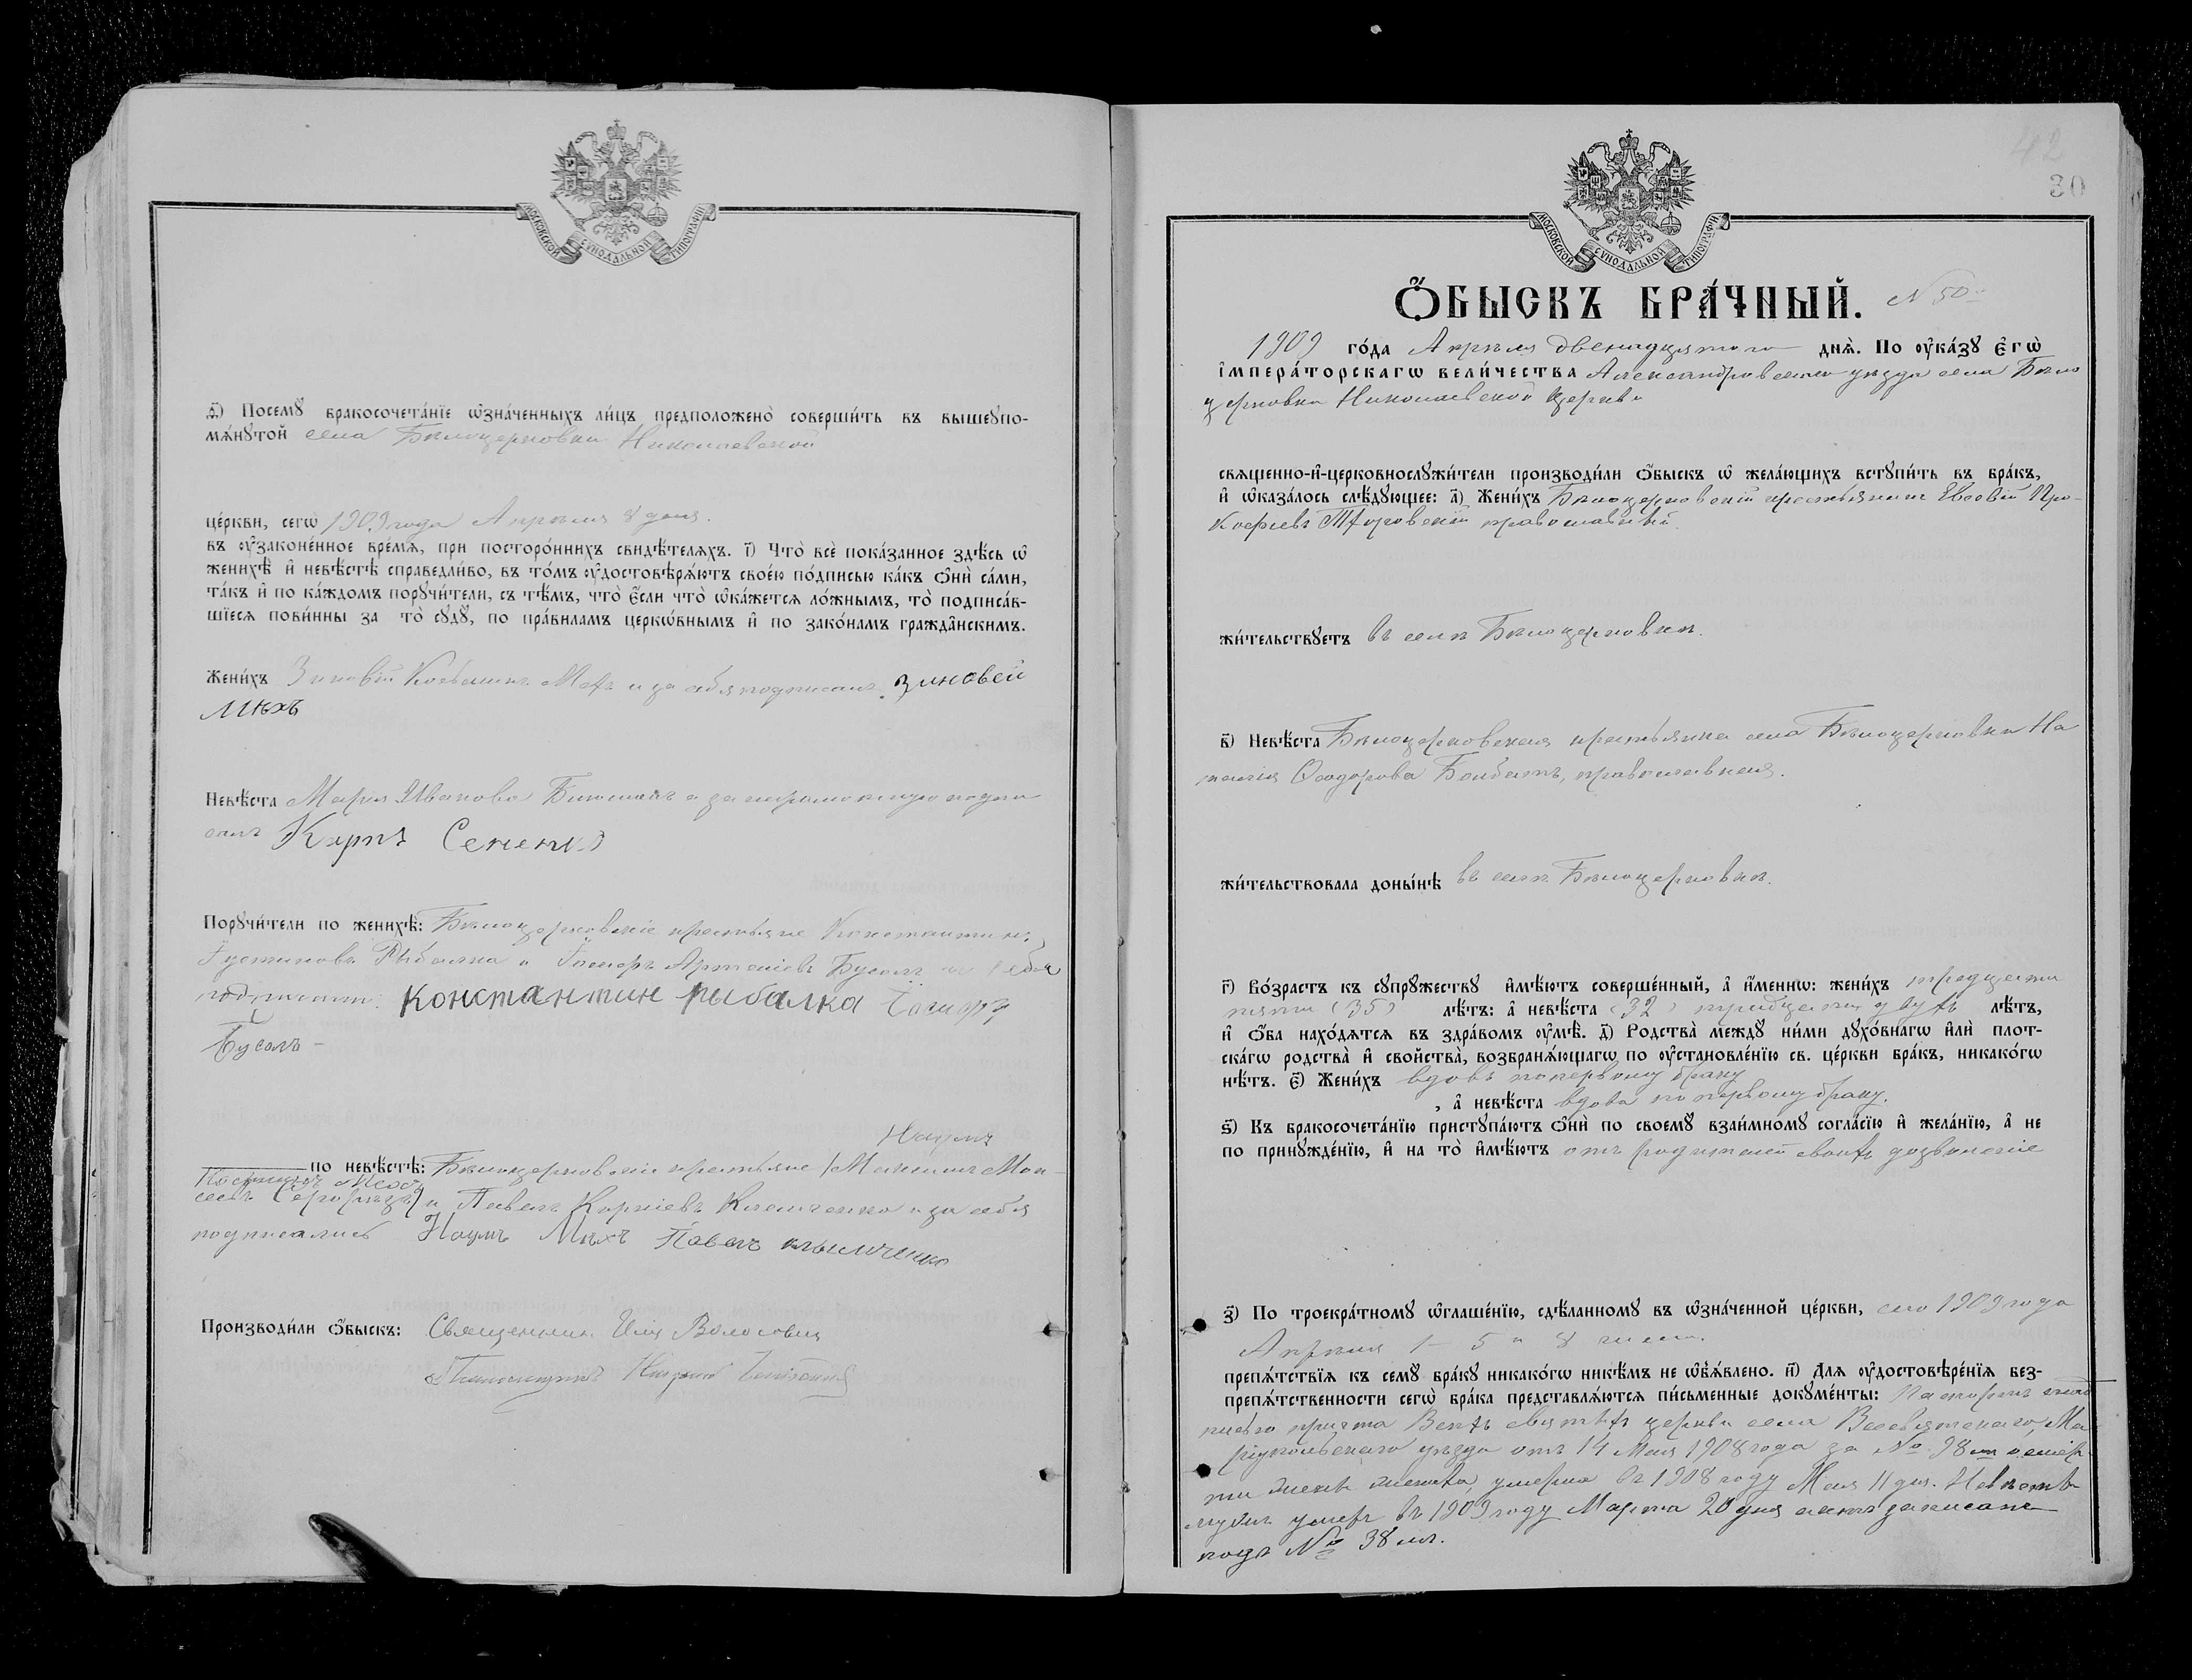 МОСКОВСКОЙ СѴНОДАЛЬНОЙ ТИПОГРАФІИ
д҃) Посемꙋ бракосочета́нїе ѡ҆зна́ченныхъ ли́цъ предположено̀ соверши́ть въ вышеꙋпо-
мѧ́нꙋтой села Бѣлоцерковки Николаевской
це́ркви, сегѡ̀ 1909 года Апрѣля 8 дня.
въ ᲂу҆законе́нное вре́мѧ, при посторо́ннихъ свидѣ́телѧхъ. і҃) Что̀ всѐ пока́занное здѣ́сь ѡ҆
женихѣ̀ и҆ невѣ́стѣ справедли́во, въ то́мъ ᲂу҆достовѣрѧ́ютъ свое́ю по́дписью ка́къ ѻ҆нѝ са́ми,
та́къ и҆ по ка́ждомъ порꙋчи́тели, съ тѣ́мъ, что̀ є҆́сли что̀ ѡ҆ка́жетсѧ ло́жнымъ, то̀ подписа́в-
шїесѧ пови́нны за то̀ сꙋдꙋ̀, по пра́виламъ церко́внымъ и҆ по зако́намъ гражда̑нскимъ.
Жени́хъ Зиновій Мѣхъ и за себя подписалъ Зиновей
Мѣхъ
Невѣ́ста Марія Иванова а за неграмотную подпи
салъ Карпъ Сененко
Порꙋчи́тели по женихѣ̀: Бѣлоцерковскіе крестьяне Константинъ
Густиновъ Рыбалка и Бусолъ за себя
подписали: Константин рыбалка
Бусолъ –
Наумъ
по невѣ́стѣ: Бѣлоцерковскіе крестьяне
и Павелъ Корніевъ Клименко и за себя
подписались Наумъ Мѣхъ Павелъ
Производи́ли ѻ҆́быскъ: Священникъ Илія Волосовичъ
Псаломщикъ
42
30
МОСКОВСКОЙ СѴНОДАЛЬНОЙ ТИПОГРАФІИ
Ѻ҆́БЫСКЪ БРА́ЧНЫЙ. N 50
1909 го́да Апрѣля двенадцятого днѧ̀. По ᲂу҆ка́зꙋ є҆гѡ̀
і҆мпера́торскагѡ вели́чества Александровскаго уѣзда села Бѣло
церковки Николаевской церкви
свѧщенно-и҆-церковнослꙋжи́тели производи́ли ѻ҆́быскъ ѡ҆ жела́ющихъ встꙋпи́ть въ бра́къ,
и҆ ѡ҆каза́лось слѣ́дꙋющее: а҃) Жени́хъ Бѣлоцерковскій крестьянинъ Евсевій Про-
кофіевъ православный.
жи́тельствꙋетъ въ селѣ Бѣлоцерковкѣ.
в҃) Невѣ́ста Бѣлоцерковская крестьянка села Бѣлоцерковки На
талія Ѳеодорова православная.
жи́тельствовала доны́нѣ въ селѣ Бѣлоцерковкѣ.
г҃) Во́зрастъ къ сꙋпрꙋ́жествꙋ и҆мѣ́ютъ соверше́нный, а҆ и҆́меннѡ: жени́хъ тридцати
пяти (35) лѣ́тъ: а҆ невѣ́ста (32) тридцати двухъ лѣ́тъ,
и҆ ѻ҆́ба нахо́дѧтсѧ въ здра́вомъ ᲂу҆мѣ̀. д҃) Родства̀ междꙋ̀ ни́ми дꙋхо́внагѡ и҆лѝ плот-
ска́гѡ родства̀ и҆ сво́йства̀, возбранѧ́ющагѡ по ᲂу҆становле́нїю св. це́ркви бра́къ, никако́гѡ
нѣ́тъ. є҃) Жени́хъ вдовъ по первому браку
, а҆ невѣ́ста вдова по первому браку.
ѕ҃) Къ бракосочета́нїю пристꙋпа́ютъ ѻ҆нѝ по своемꙋ̀ взаи́мномꙋ согла́сїю и҆ жела́нїю, а҆ не
по принꙋжде́нїю, и҆ на то̀ и҆мѣ́ютъ отъ родителей своихъ дозволеніе
з҃) По троекра́тномꙋ ѡ҆глаше́нїю, сдѣ́ланномꙋ въ ѡ҆зна́ченной це́ркви, сего 1909 года
Апрѣля 1 – 5 и 8 чиселъ.
препѧ́тствїѧ къ семꙋ̀ бра́кꙋ никако́гѡ никѣ́мъ не ѡ҆б̾ѧ́влено. и҃) Длѧ ᲂу҆достовѣре́нїѧ без-
препѧ́тственности сегѡ̀ бра́ка представлѧ́ютсѧ пи́сьменные докꙋме́нты: Паспортъ съ над
писью причта Всѣхъ святыхъ церкви села Всесвятскаго, Ма
ріупольскаго уѣзда отъ 14 Мая 1908 года за № 98 о смер
ти жены жениха, умерла въ 1908 году Мая 11 дня. Невѣсты
мужъ умеръ въ 1909 году Марта 20 дня актъ записанъ
подъ № 38 мъ.